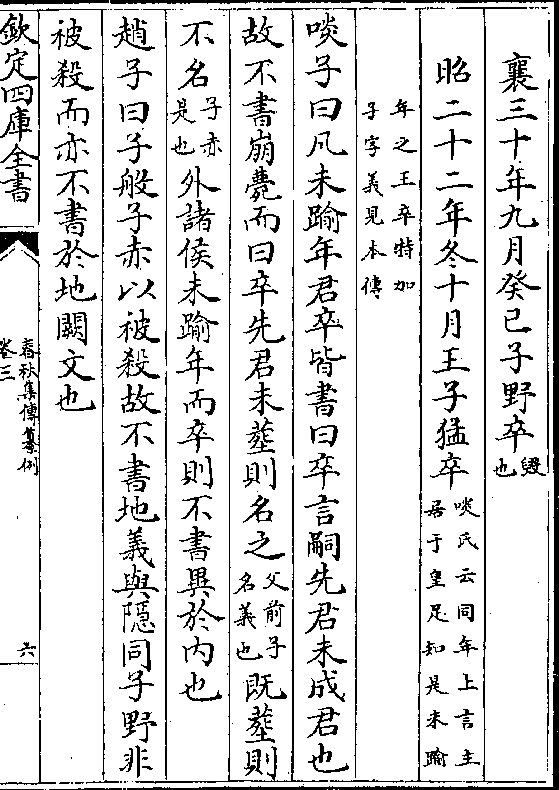 襄三十年九月癸巳子野卒毀也
昭二十二年冬十月王子猛卒啖氏云同年上言王居于皇足知是未踰
年之王卒特加子字義見本傳
啖子曰凡未踰年君卒皆書曰卒言嗣先君未成君也
故不書崩薨而曰卒先君未塟則名之父前子名義也既塟則
不名子赤是也外諸侯未踰年而卒則不書異於内也
趙子曰子般子赤以被殺故不書地義與隱同子野非
被殺而亦不書於地闕文也
欽定四庫全書
春秋集傳纂例
卷三
六